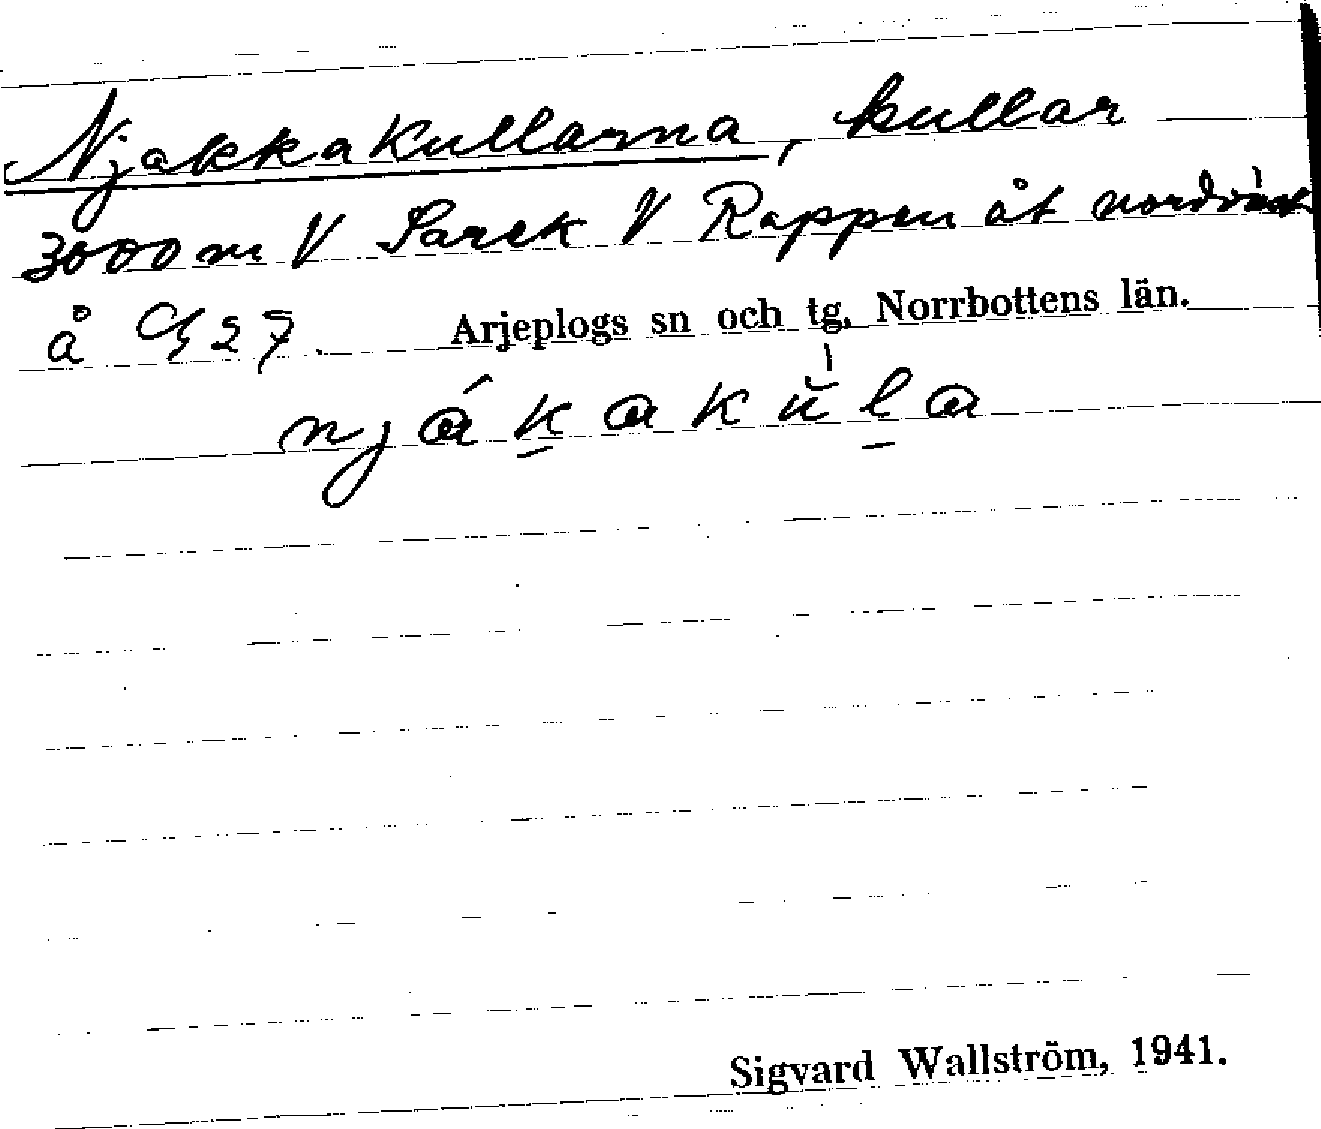 Njakkakullarna, kullar
3000 m V Sarek V Rappen åt nordväst
å G 27. Arjeplogs sn och tg, Norrbottens län.
njákakŭla
Sigvard Wallström, 1941.